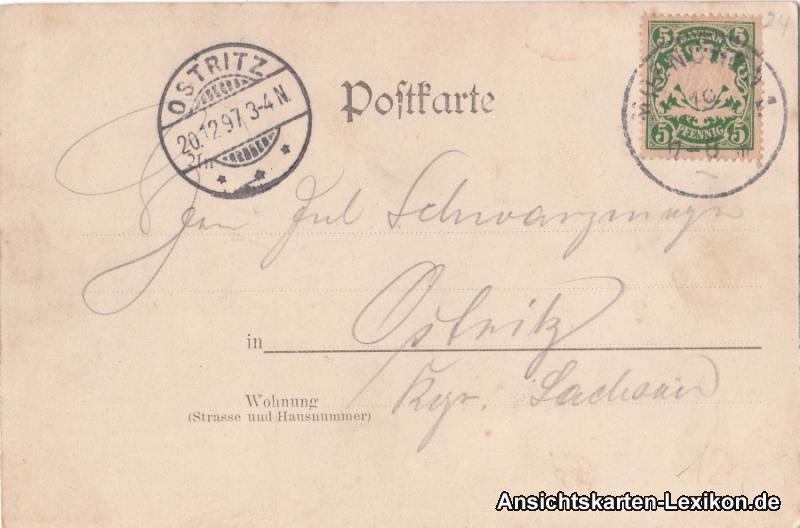 OSTRITZ
20.12.97. 3-4 N.
Postkarte
5 5
5 PFENNIG 5
24
Jul. Schwarzmeyer
in Ostritz
Wohnung
(Strasse und Hausnummer)
Kgr. Sachsen
Ansichtskarten-Lexikon.de